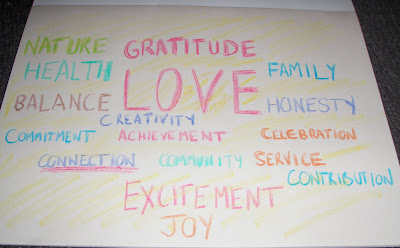 NATURE GRATITUDE
HEALTH LOVE FAMILY
BALANCE HONESTY
CREATIVITY
COMMITMENT ACHIEVEMENT CELEBRATION
CONNECTION COMMUNITY SERVICE
CONTRIBUTION
EXCITEMENT
JOY